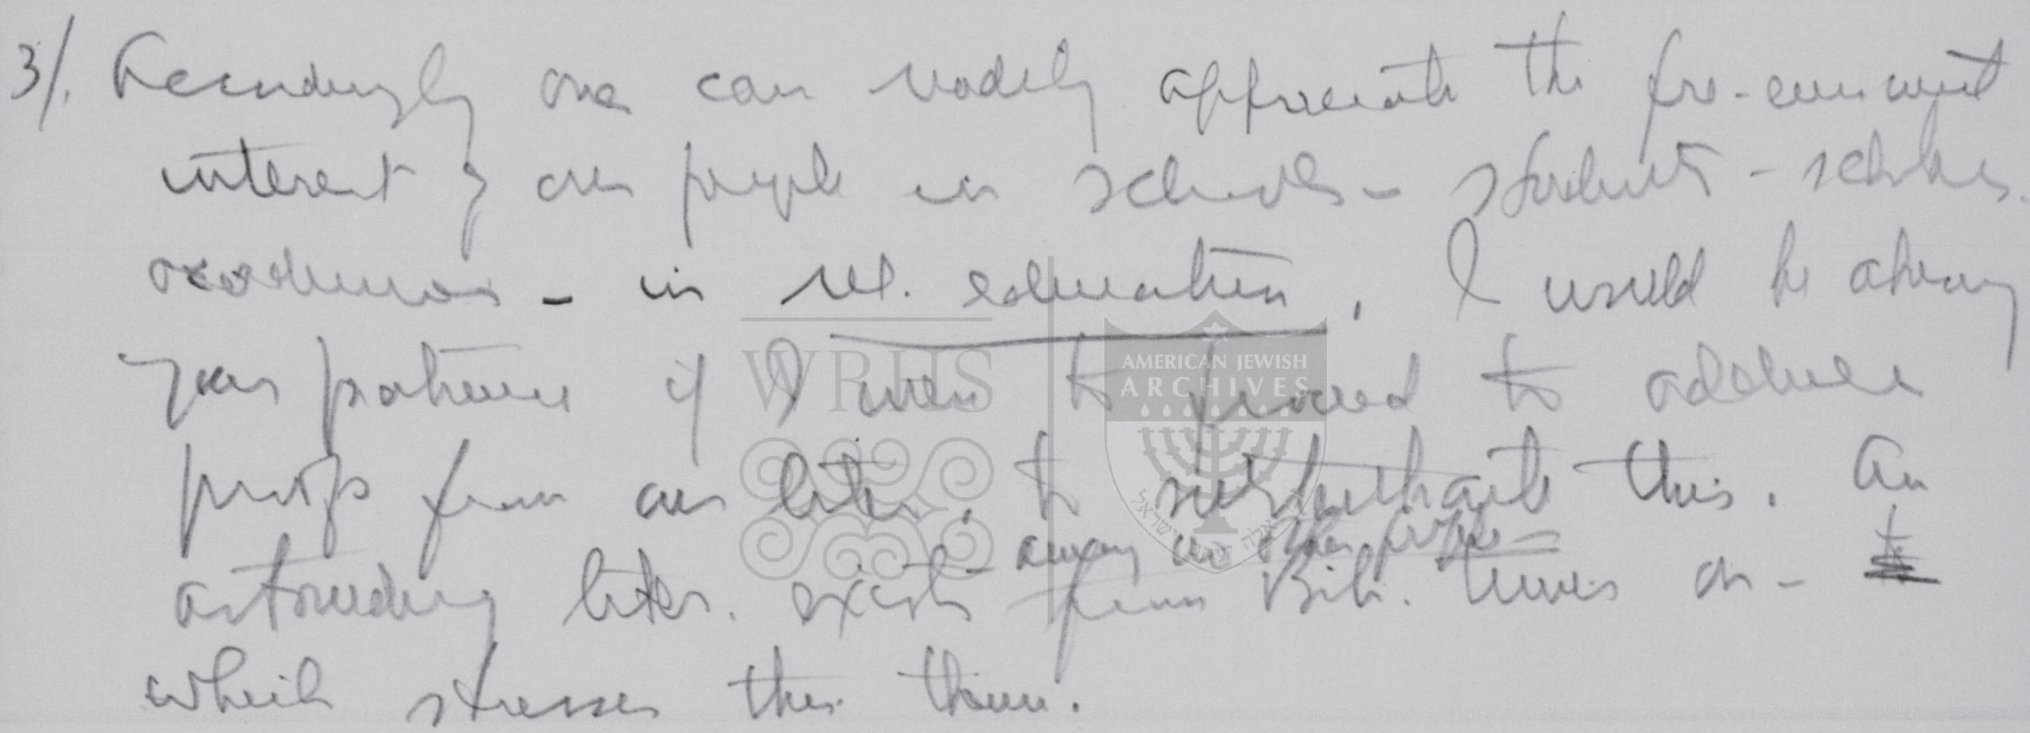 3/. Accordingly one can readily appreciate the pre-eminent
interest of our people in schools - students - scholars
academies - in rel. education. I would be abusing
your patience if I were to proceed to adduce
proofs from our liter. to substantiate this. An
among our other people -
astounding liter. exists from Bib. times on -
which stresses this theme.
WRHS
AMERICAN JEWISH
ARCHIVES